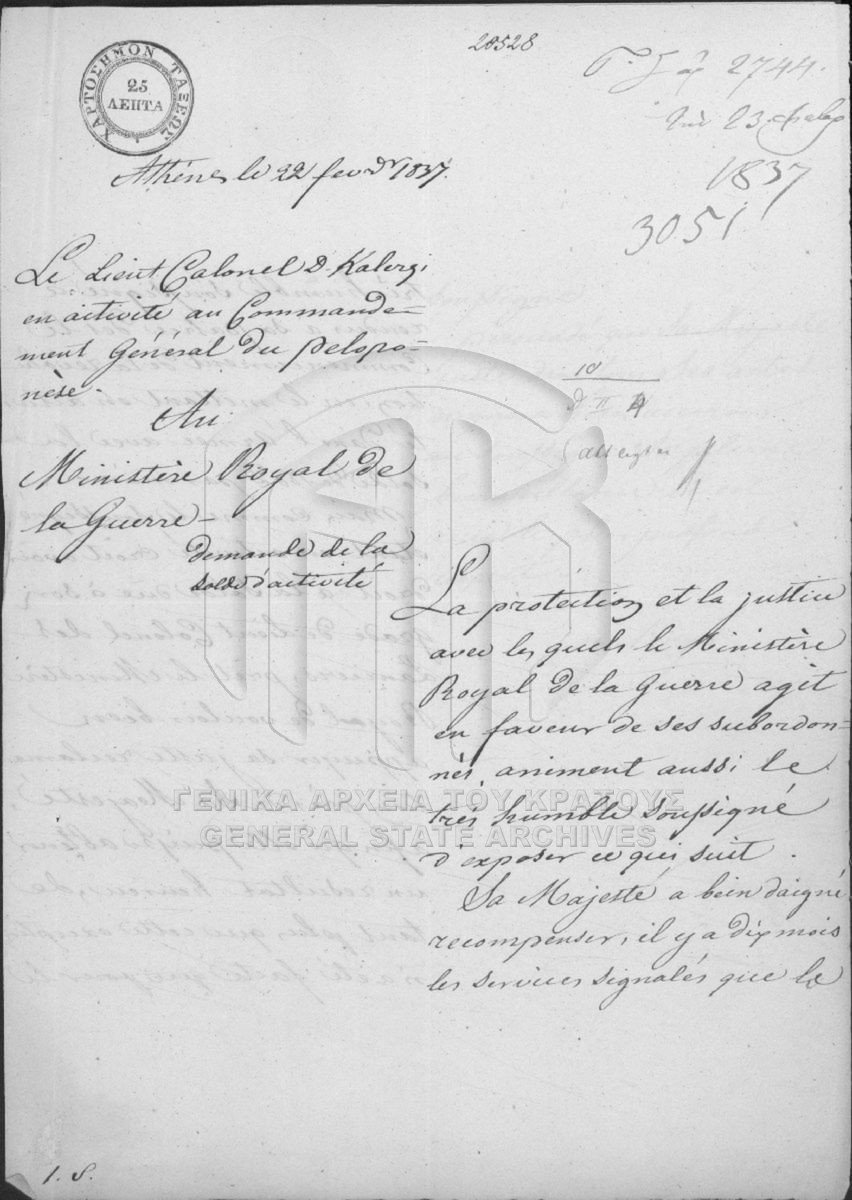 20528
2744.
23
1837
3051
ΧΑΡΤΟΣΗΜΟΝ ΤΑΞΕΩΣ
25
ΛΕΠΤΑ
Athénes le 22 fevr 1837.
Le Lieut Colonel D. Kalergi
en activité au Commande-
ment Général du Pelopo-
nèse.
Au
Ministère Royal de
la Guerre-
demande de la
solde d'activité
10
D II 4
La protection et la justice
avec les quels le Ministère
Royal de la Guerre agit
en faveur de ses subordon-
nés, animent aussi le
très humble soussigné
d'exposer ce qui suit.
Sa Majesté a bien daigné
recompenser, il y a dix mois
les services signalés que le
1. S.
ΓΕΝΙΚΑ ΑΡΧΕΙΑ ΤΟΥ ΚΡΑΤΟΥΣ
GENERAL STATE ARCHIVES